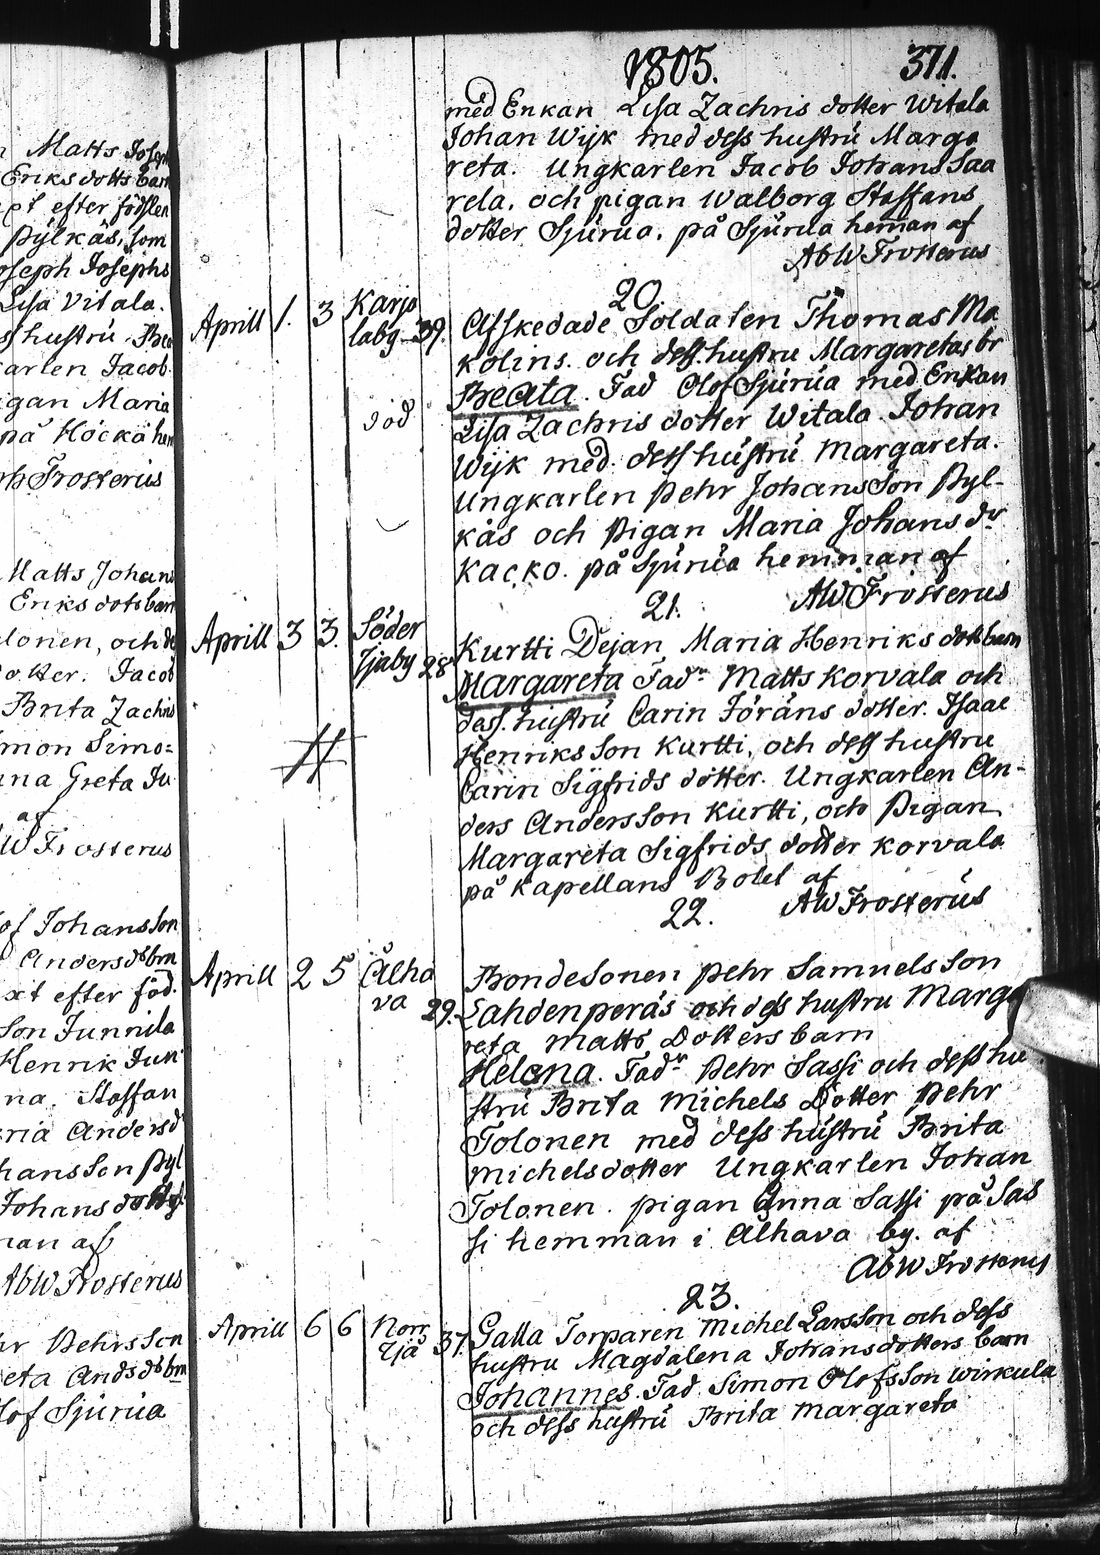 Matts Joseph
Eriks dotts barn
xt efter födslen
Pylkäs, som
oseph Josephs
Lisa Vitala.
s hustru Bea
arlen Jacob
gan Maria
på Höckä hem
ph Frosterius
Matts Johans
Eriks dots barn
lonen, och de
otter. Jacob
Brita Zachris
mon Simo=
na Greta Ju
af
W Frosterus
of Johansson
Anders dr brn
xt efter föd.
son Junnila
Henrik Jun
na. Staffan
ria Andersd
hansson Pyl
Johans dotty
man af
AbW Frosterus
hr Pehrsson
eta Ands dr brn
lof Sjurua
1805. 371.
med Enkan Lisa Zachris dotter Witala
Johan Wijk med dess hustru Marga
reta. Ungkarlen Jacob Johans Saa
rela. och pigan Walborg Staffans
dotter Sjurua. på Sjurua heman af
AbW Frosterus
20
Aprill 1. 3 Karjo
laby 39. Afskedade Soldaten Thomas Ma
kolins och dess hustru Margaretas br
död Beata. Fad Olof Sjurua med Enkan
Lisa Zachris dotter Witala Johan
Wijk med dess hustru Margareta.
Ungkarlen Pehr Johansson Pyl-
käs och Pigan Maria Johans dr
Kacko. på Sjurua hemman af
AW Frosterus
21.
Aprill 3 3. Söder
Ijaby 28 Kurtti Dejan Maria Henriks dott barn
Margareta Fadr Matts Korvala och
dess hustru Carin Jöräns dotter. Isaac
Henriksson Kurtti, och dess hustru
Carin Sigfrids dotter. Ungkarlen An-
ders Andersson Kurtti, och Pigan
Margareta Sigfrids dotter Korvala
på Kapellans Bolel af
AW Frosterus
22.
Aprill 2 5 Alha
va 29. Bondesonen Pehr Samuelsson
Lahdenperäs och dess hustru Marga
reta Matts Dotters barn
Helena. Fadr Pehr Sassi och dess hu
stru Brita Michels Dotter Pehr
Tolonen med dess hustru Brita
Michelsdotter Ungkarlen Johan
Tolonen. pigan Anna Sassi på Sas
si hemman i Alhava by. af
AbW Frosterus
23.
Aprill 6 6 Norr
Ijå 37. Galla Torparen Michel Larsson och dess
hustru Magdalena Johansdotters barn
Johannes. Fad. Simon Olofsson Wirkula
och dess hustru Brita Margareta